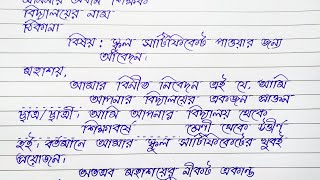 বিদ্যালয়ের নাম
ঠিকানা
বিষয় : স্কুল সার্টিফিকেট পাওয়ার জন্য
আবেদন।
মহাশয়,
আমার বিনীত নিবেদন এই যে, আমি
আপনার বিদ্যালয়ের একজন প্রাক্তন
ছাত্র/ছাত্রী। আমি আপনার বিদ্যালয় থেকে
শিক্ষাবর্ষে শ্রেণী থেকে উত্তীর্ণ
হই। বর্তমানে আমার স্কুল সার্টিফিকেটের খুবই
প্রয়োজন।
অতএব মহাশয়ের নিকট একান্ত